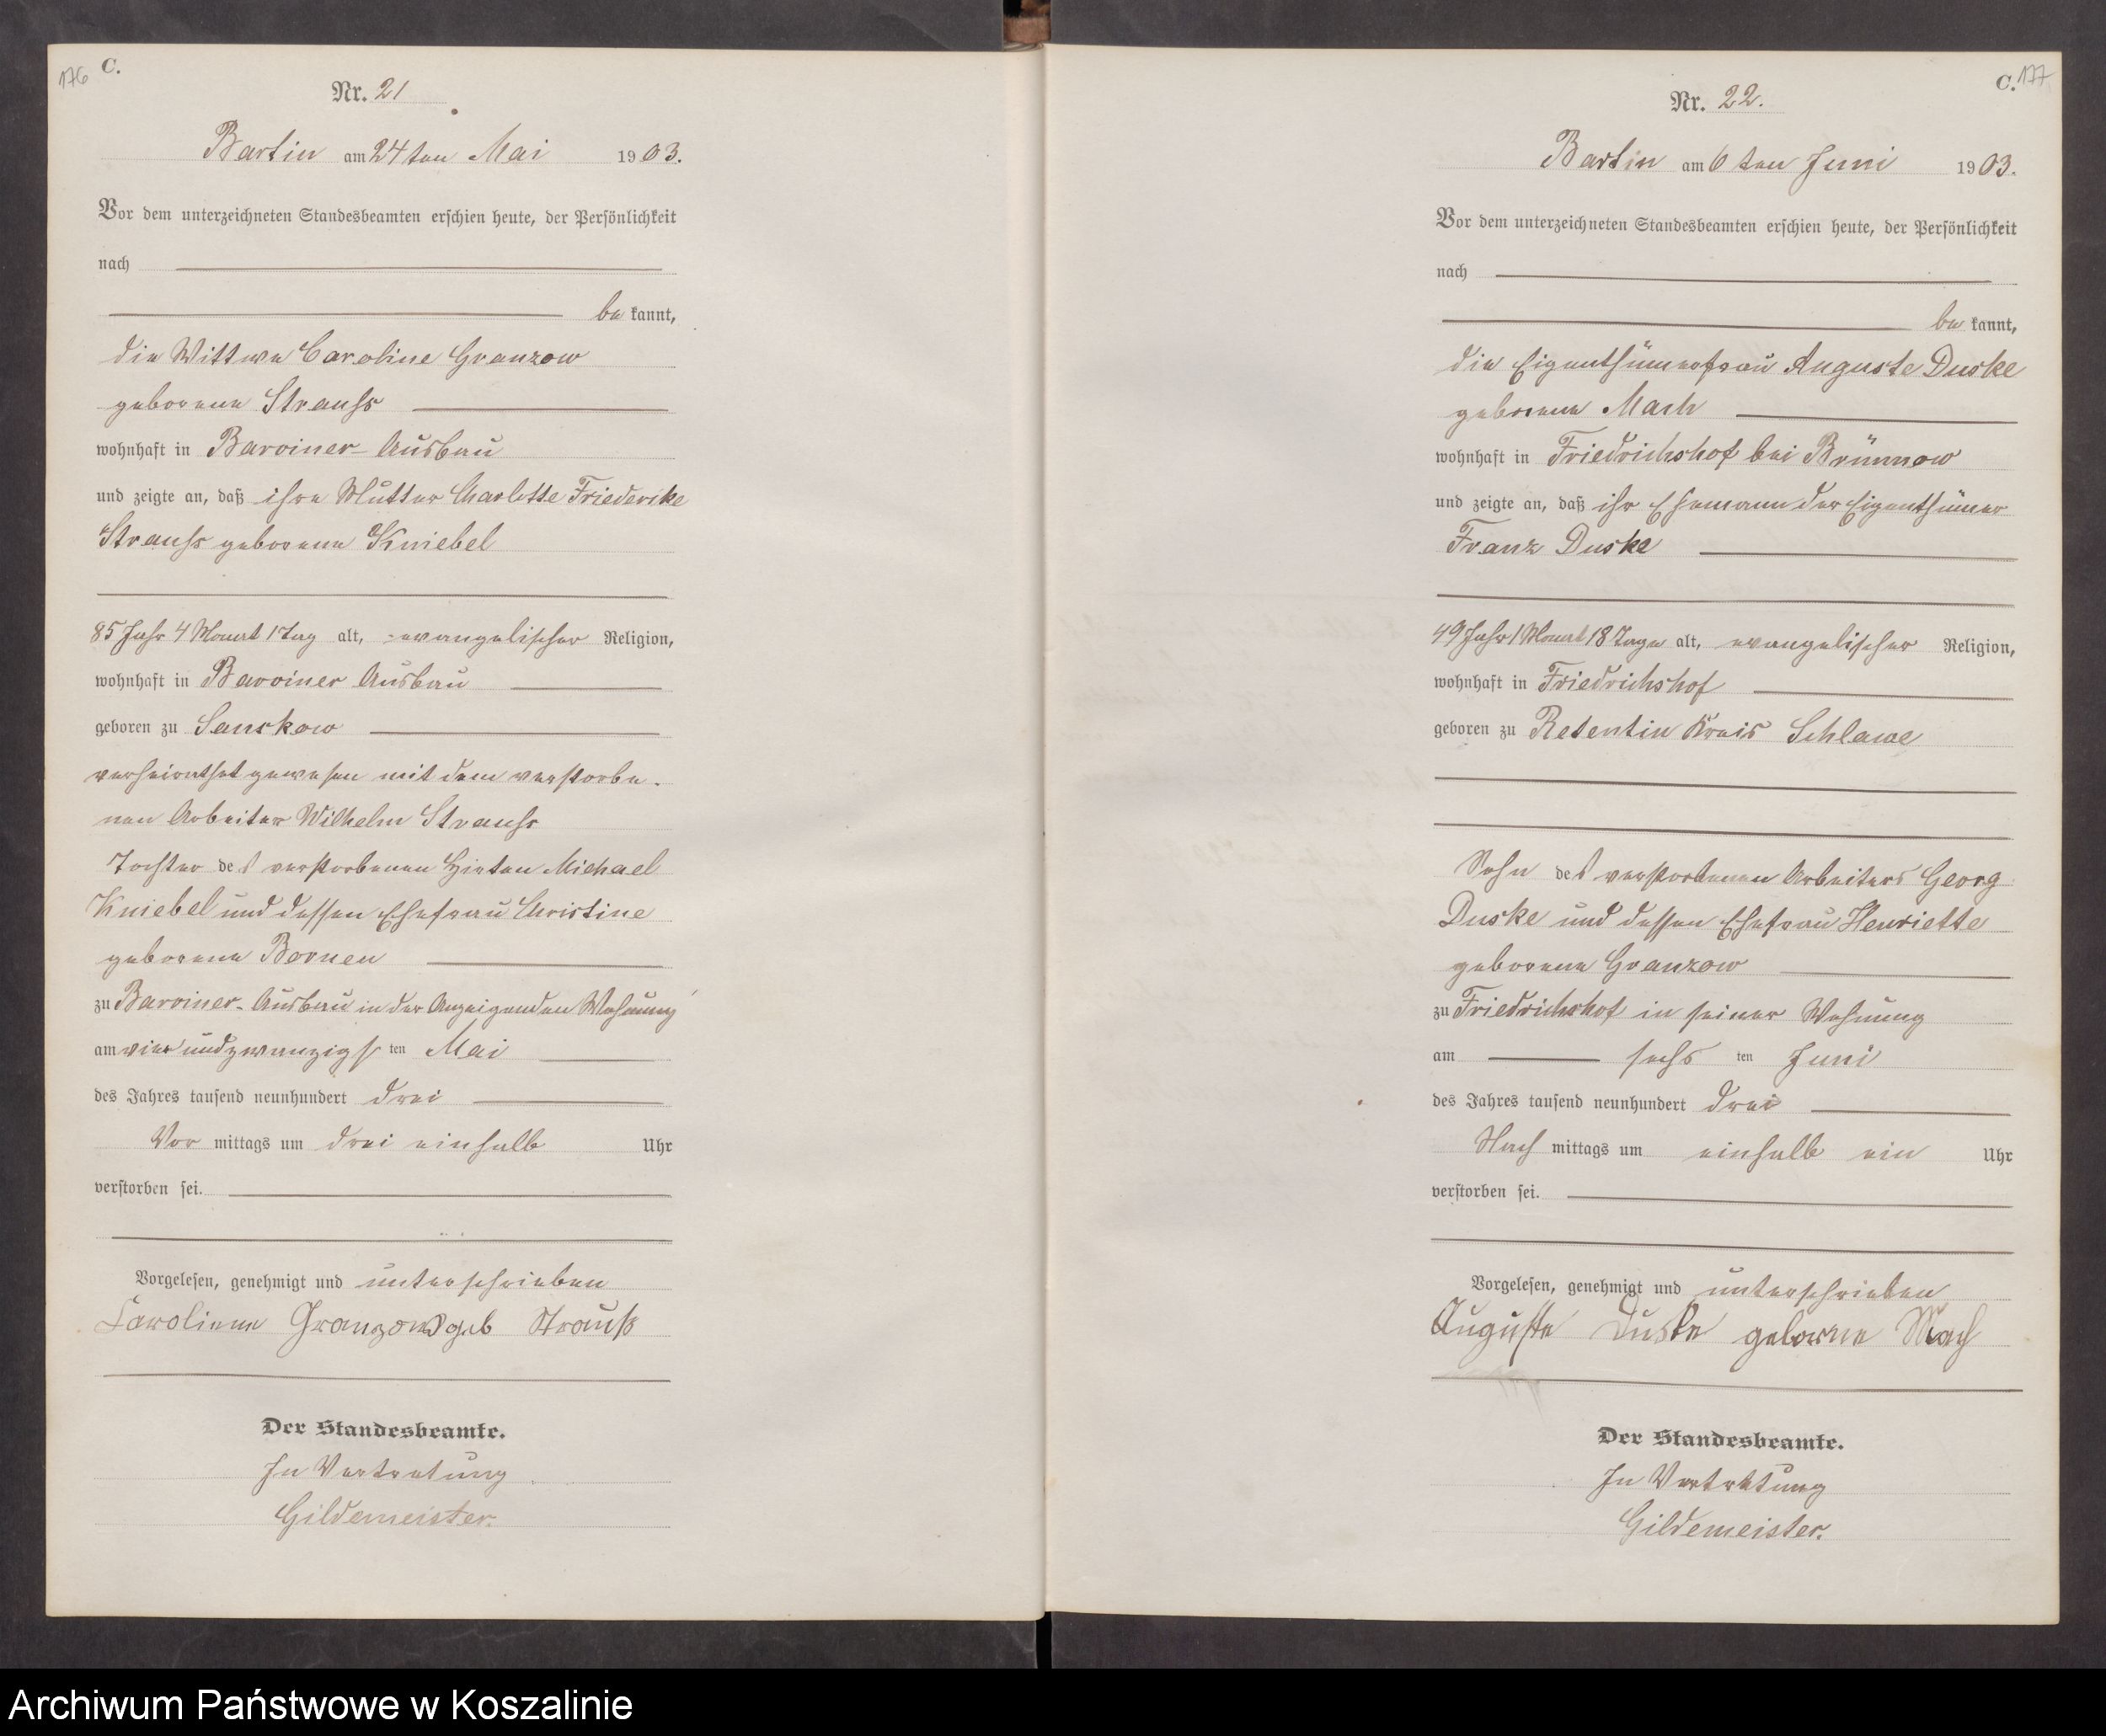 176 C.
Nr. 21
Bartin am 24 ten Mai 1903.
Vor dem unterzeichneten Standesbeamten erschien heute, der Persönlichkeit
nach
be kannt,
die Wittwe Caroline Granzow
geborene Strauss
wohnhaft in Barviner-Ausbau
und zeigte an, daß ihre Mutter Charlotte Friederike
Strauss geborene Kniebel
85 Jahr 4 Monat 1 Tag alt, evangelischer Religion,
wohnhaft in Barviner Ausbau
geboren zu Sanskow
verheirathet gewesen mit dem verstorbe-
nen Arbeiter Wilhelm Strauss
Tochter des verstorbenen Hirten Michael
Kniebel und dessen Ehefrau Christine
geborene Bornen
zu Barviner-Ausbau in der Anzeigenden Wohnung
am vierundzwanzigsten Mai
des Jahres tausend neunhundert drei
Vor mittags um drei einhalb Uhr
verstorben sei.
Vorgelesen, genehmigt und unterschrieben
Caroliene Granzow geb Strauß
Der Standesbeamte.
In Vertretung
Gildemeister.
C. 177
Nr. 22.
Bartin am 6 ten Juni 1903.
Vor dem unterzeichneten Standesbeamten erschien heute, der Persönlichkeit
nach
be kannt,
die Eigenthümerfrau Auguste Duske
geborene Mach
wohnhaft in Friedrichshof bei Brünnow
und zeigte an, daß ihr Ehemann der Eigenthümer
Franz Duske
49 Jahr 1 Monat 18 Tage alt, evangelischer Religion,
wohnhaft in Friedrichshof
geboren zu Retentin Kreis Schlawe
Sohn des verstorbenen Arbeiters Georg
Duske und dessen Ehefrau Henriette
geborene Granzow
zu Friedrichshof in seiner Wohnung
am sechs ten Juni
des Jahres tausend neunhundert drei
Nach mittags um einhalb ein Uhr
verstorben sei.
Vorgelesen, genehmigt und unterschrieben
Auguste Duske geborne Mach
Der Standesbeamte.
In Vertretung
Gildemeister.
Archiwum Państwowe w Koszalinie